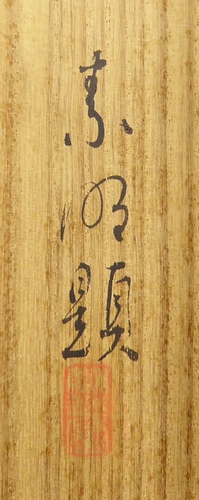 素明題